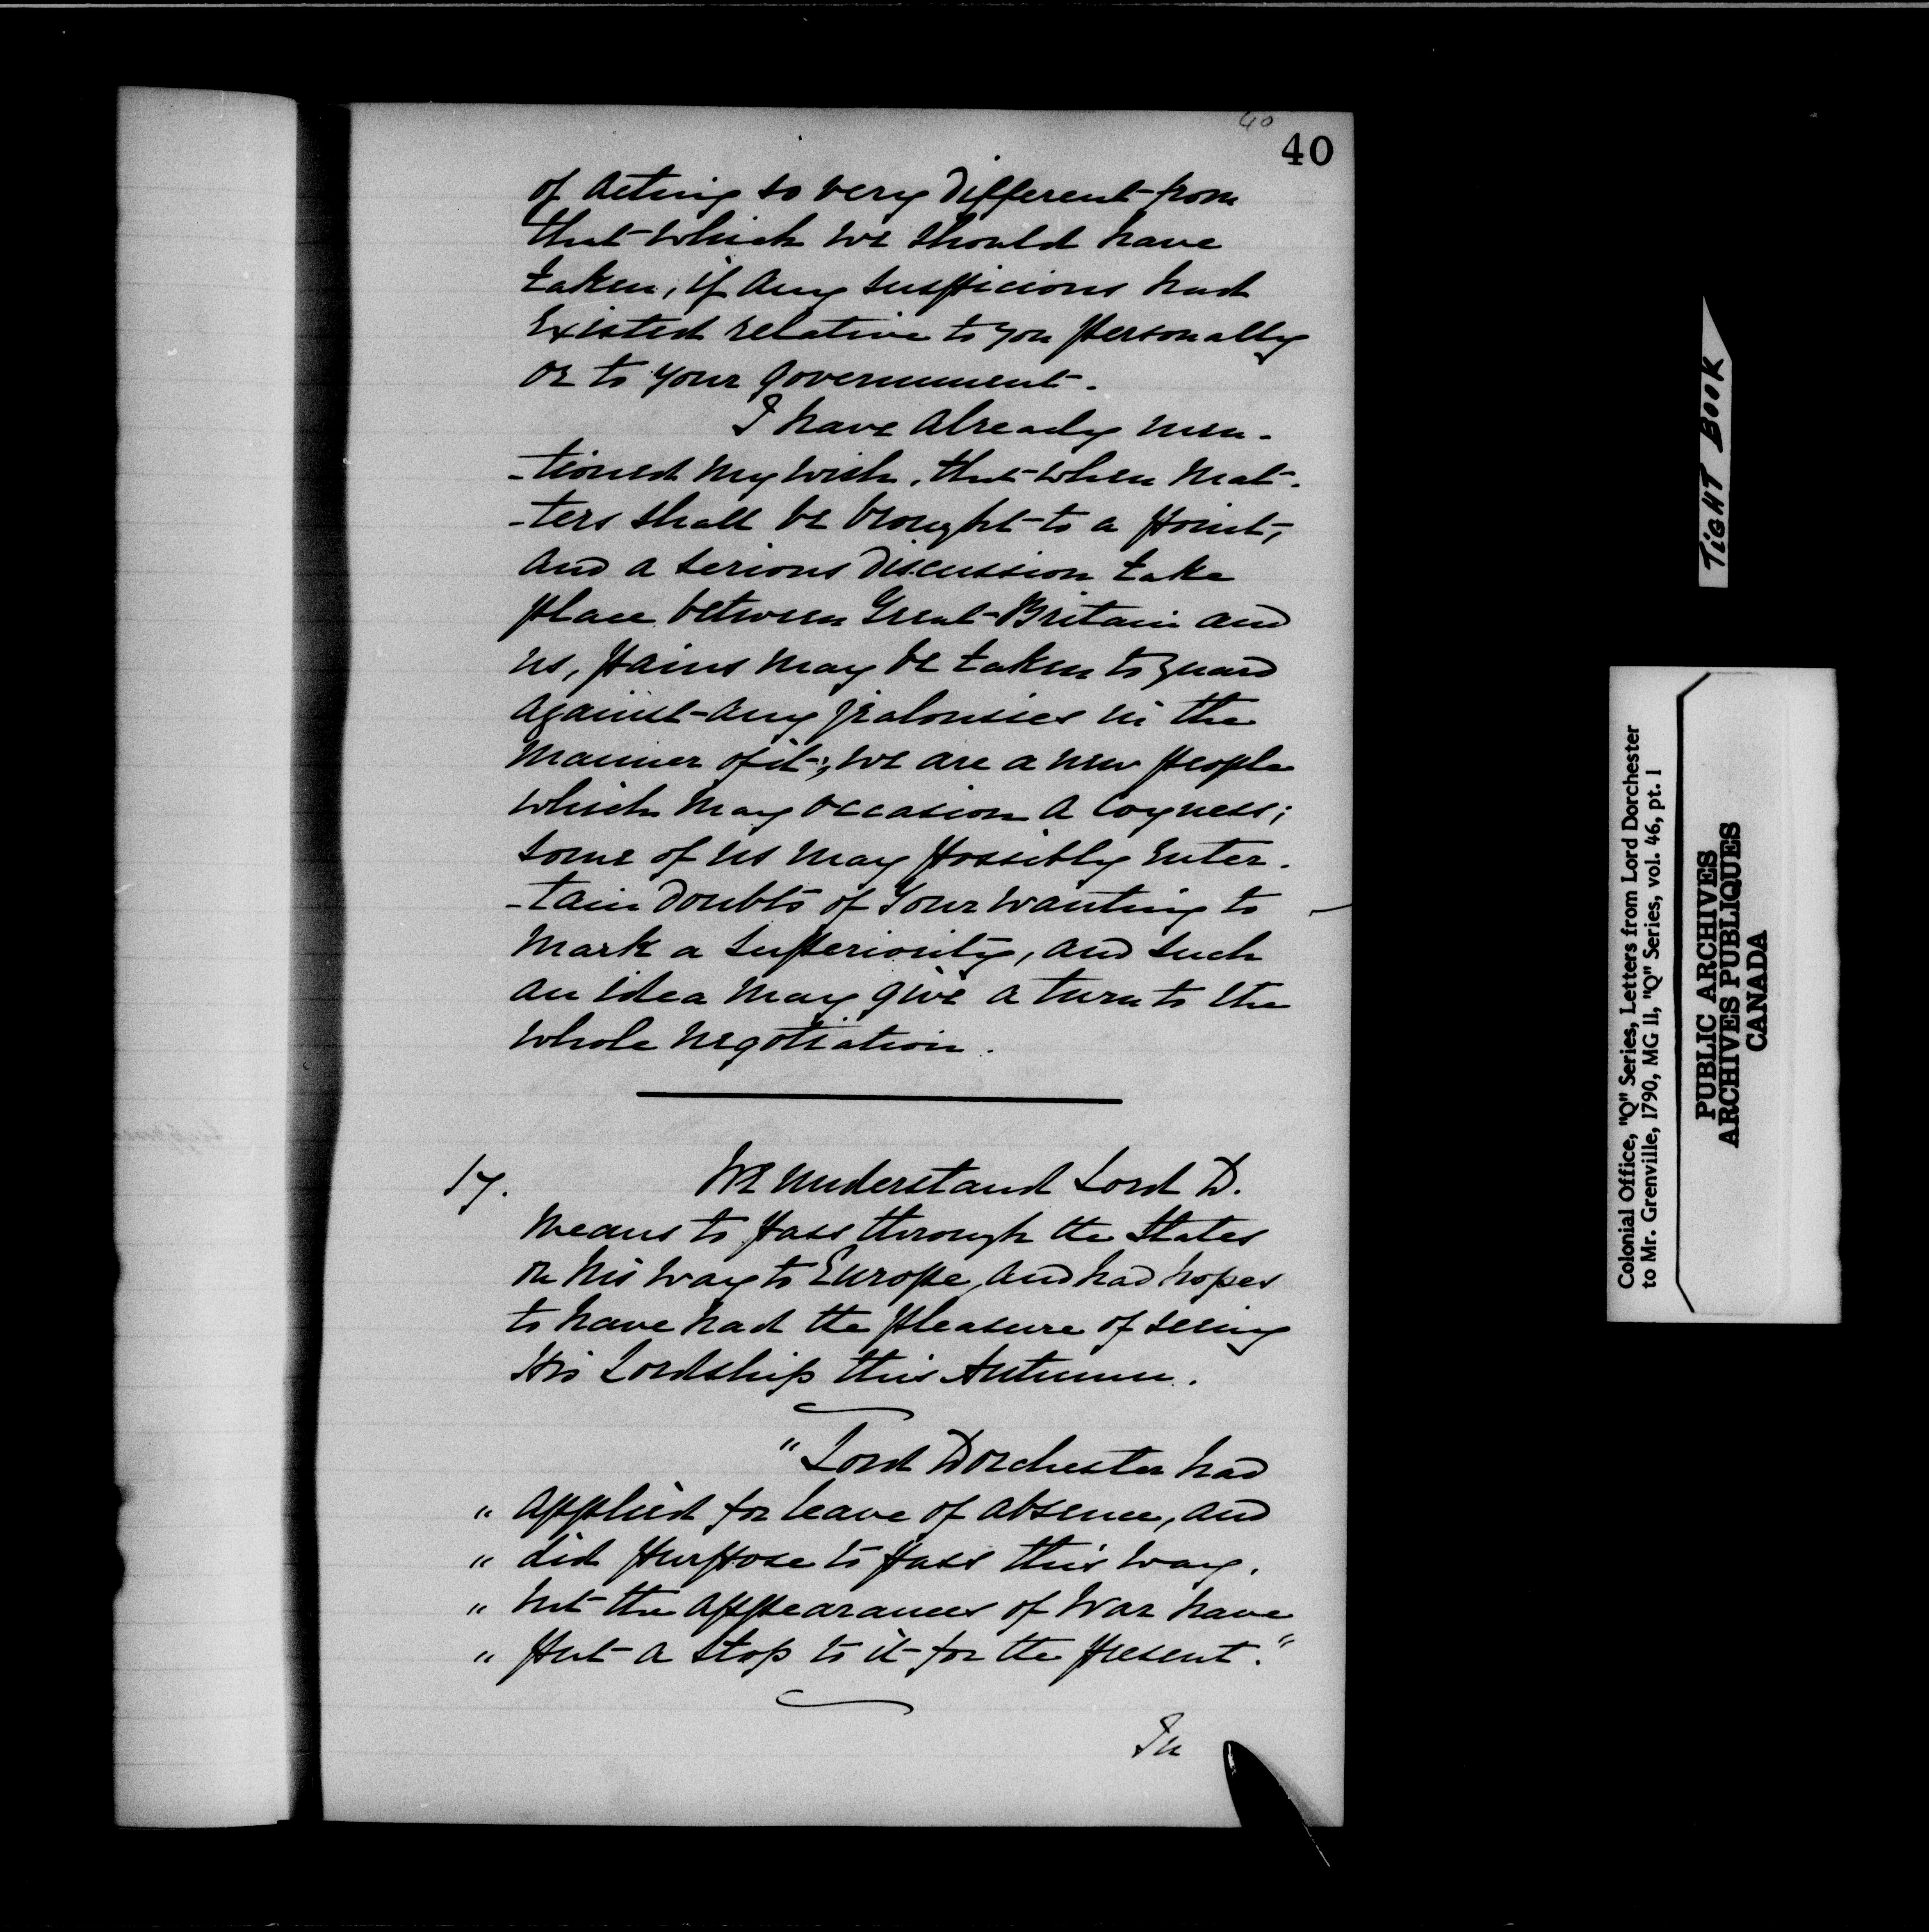 40
40
of acting so very different from
that which we should have
taken, if any suspicions had
existed relative to you personally
or to your government.
I have already men-
-tioned my wish, that when mat-
-ters shall be brought to a point,
and a serious discussion take
place between Great-Britain and
us, pains may be taken to guard
against any jealousies in the
manner of it; we are a new people
which may occasion a coyness;
some of us may possibly enter-
-tain doubts of your wanting to
mark a superiority, and such
an idea may give a turn to the
whole negotiation.
17. We understand Lord D.
means to pass through the States
on his way to Europe, and had hopes
to have had the pleasure of seeing
His Lordship this Autumn.
"Lord Dorchester had
" applied for leave of absence, and
" did purpose to pass this way,
" but the appearances of War have
" put a stop to it for the present."
In
TIGHT BOOK
Colonial Office, "Q" Series, Letters from Lord Dorchester
to Mr. Grenville, 1790, MG 11, "Q" Series, vol. 46, pt. 1
PUBLIC ARCHIVES
ARCHIVES PUBLIQUES
CANADA